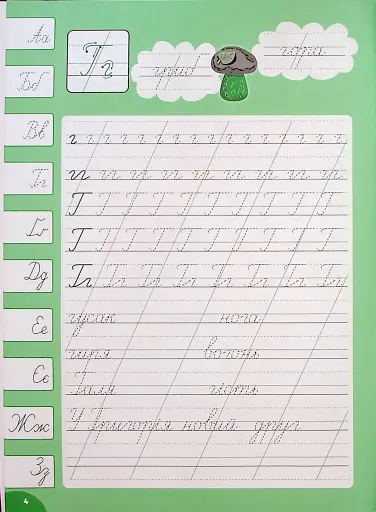 Аа
Бб
Вв
Гг
Ґґ
Дд
Ее
Єє
Жж
Зз
Гг
гриб
гора
г г г г г г г г г г г г г г г г г
гг гг гг гг гг гг гг гг гг
Г Г Г Г Г Г Г Г Г Г
Г Г Г Г Г Г Г Г Г Г
Гг Гг Гг Гг Гг Гг Гг Гг
гусак нога
гиря вогонь
Галя гість
У Григорія новий друг
4